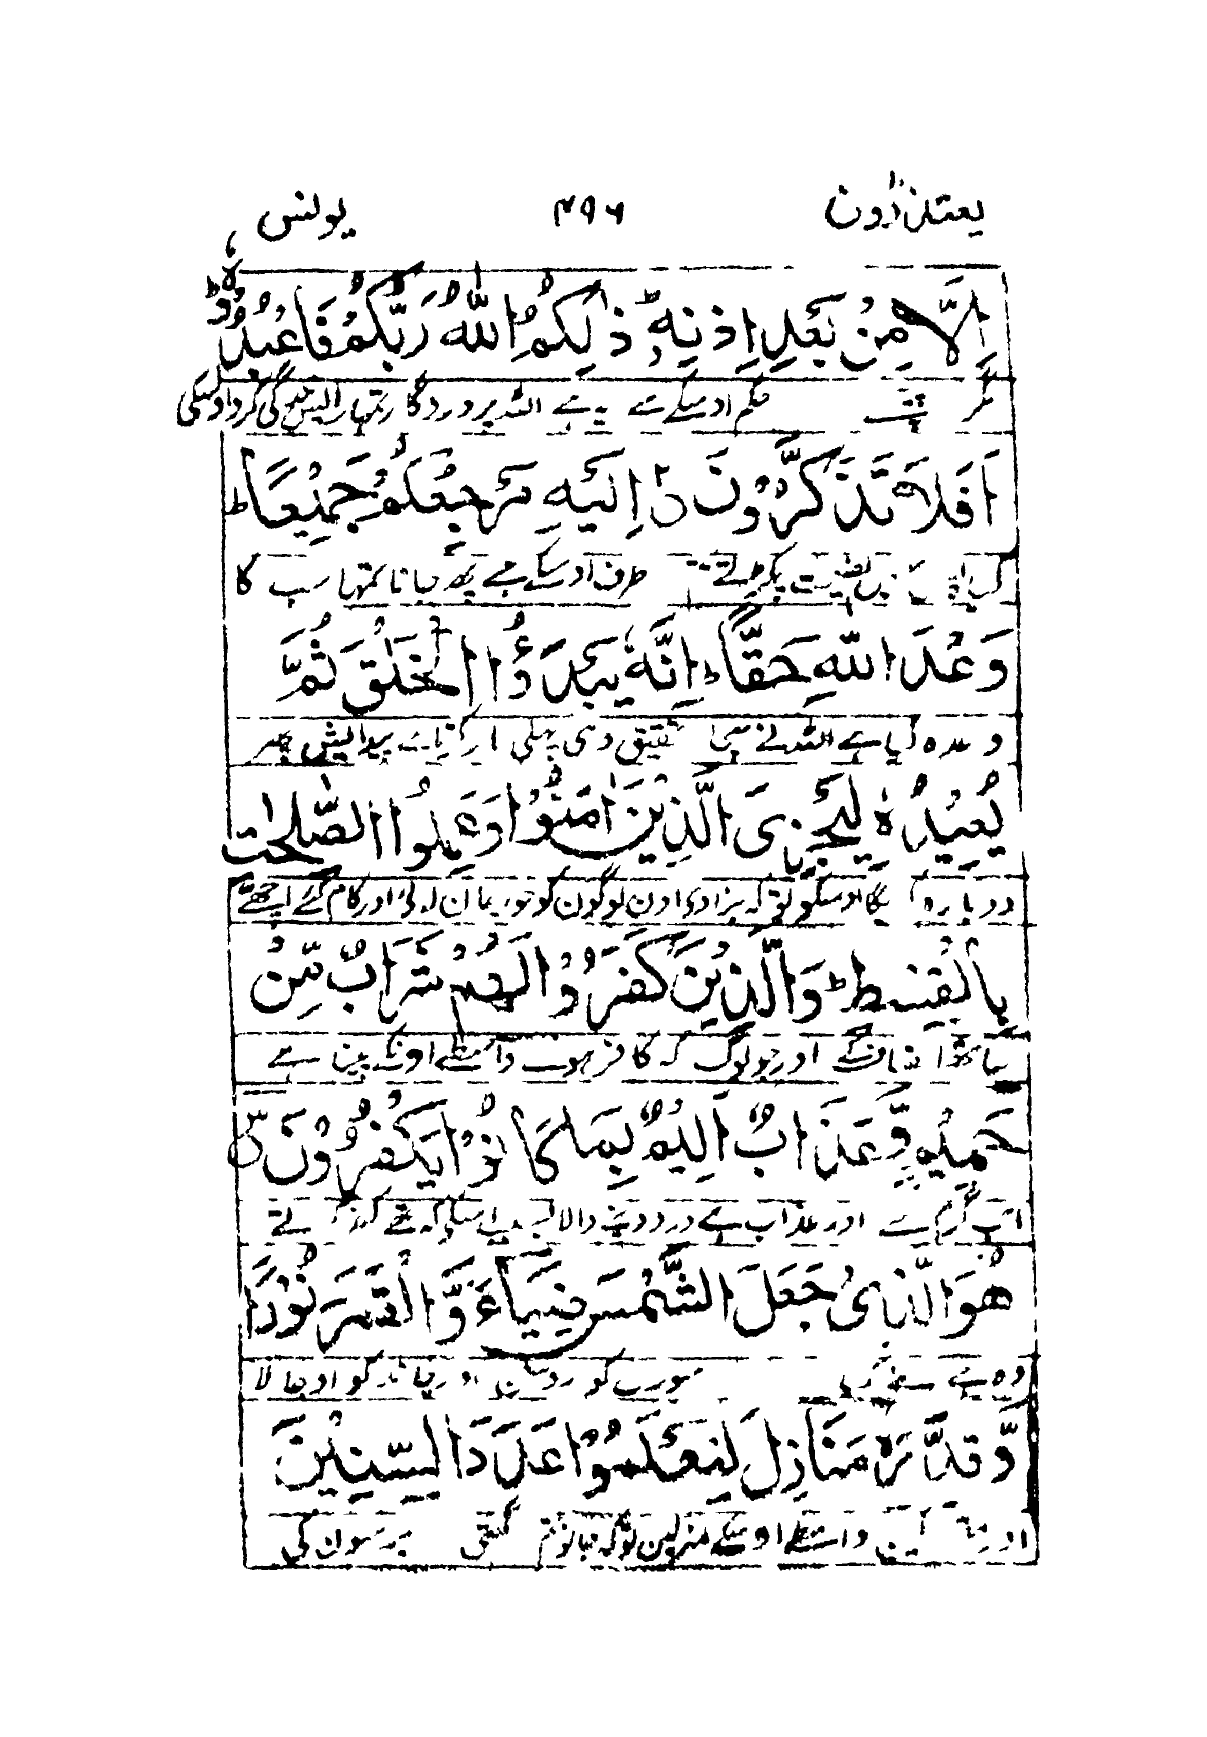 یعتذرون ۴۹۶ یونس
اِلَّا مِنْۢ بَعْدِ اِذْنِهٖ ؕ ذٰلِكُمُ اللّٰهُ رَبُّكُمْ فَاعْبُدُوْهُ ؕ
مگر حکم اوسکے سے یہ ہے اللہ پروردگار تمہارا
اَفَلَا تَذَكَّرُوْنَ اِلَیْهِ مَرْجِعُكُمْ جَمِیْعًا ؕ
طرف اوسکے ہے پھر جانا تمہا سب کا
وَعْدَ اللّٰهِ حَقًّا ؕ اِنَّهٗ یَبْدَؤُا الْخَلْقَ ثُمَّ
وعدہ کیا ہے اللہ نے سچا تحقیق وہی پہلی بار پیدایش پھر
یُعِیْدُهٗ لِیَجْزِیَ الَّذِیْنَ اٰمَنُوْا وَعَمِلُوا الصّٰلِحٰتِ
دوبارہ اوسکو توکہ جزا دی اون لوگون کو جو ایمان لائی اور کام کئے اچھے
بِالْقِسْطِ ؕ وَالَّذِیْنَ كَفَرُوْا لَهُمْ شَرَابٌ مِّنْ
ساتھ انصاف کے اور جو لوگ کہ کافر ہوے واسطے اونکے پینا ہے
حَمِیْمٍ وَّعَذَابٌ اَلِیْمٌۢ بِمَا كَانُوْا یَكْفُرُوْنَ
آب گرم سے اور عذاب ہے درد دینے والا بسبب اسکے کہ تھے کفر کرتے
هُوَ الَّذِیْ جَعَلَ الشَّمْسَ ضِیَآءً وَّالْقَمَرَ نُوْرًا
وہ ہے جسنے کیا سورج کو روشن اور چاند کو اوجالا
وَّقَدَّرَهٗ مَنَازِلَ لِتَعْلَمُوْا عَدَدَ السِّنِیْنَ
اور کین واسطے اوسکے منزلین توکہ جانو تم گنتی برسون کی